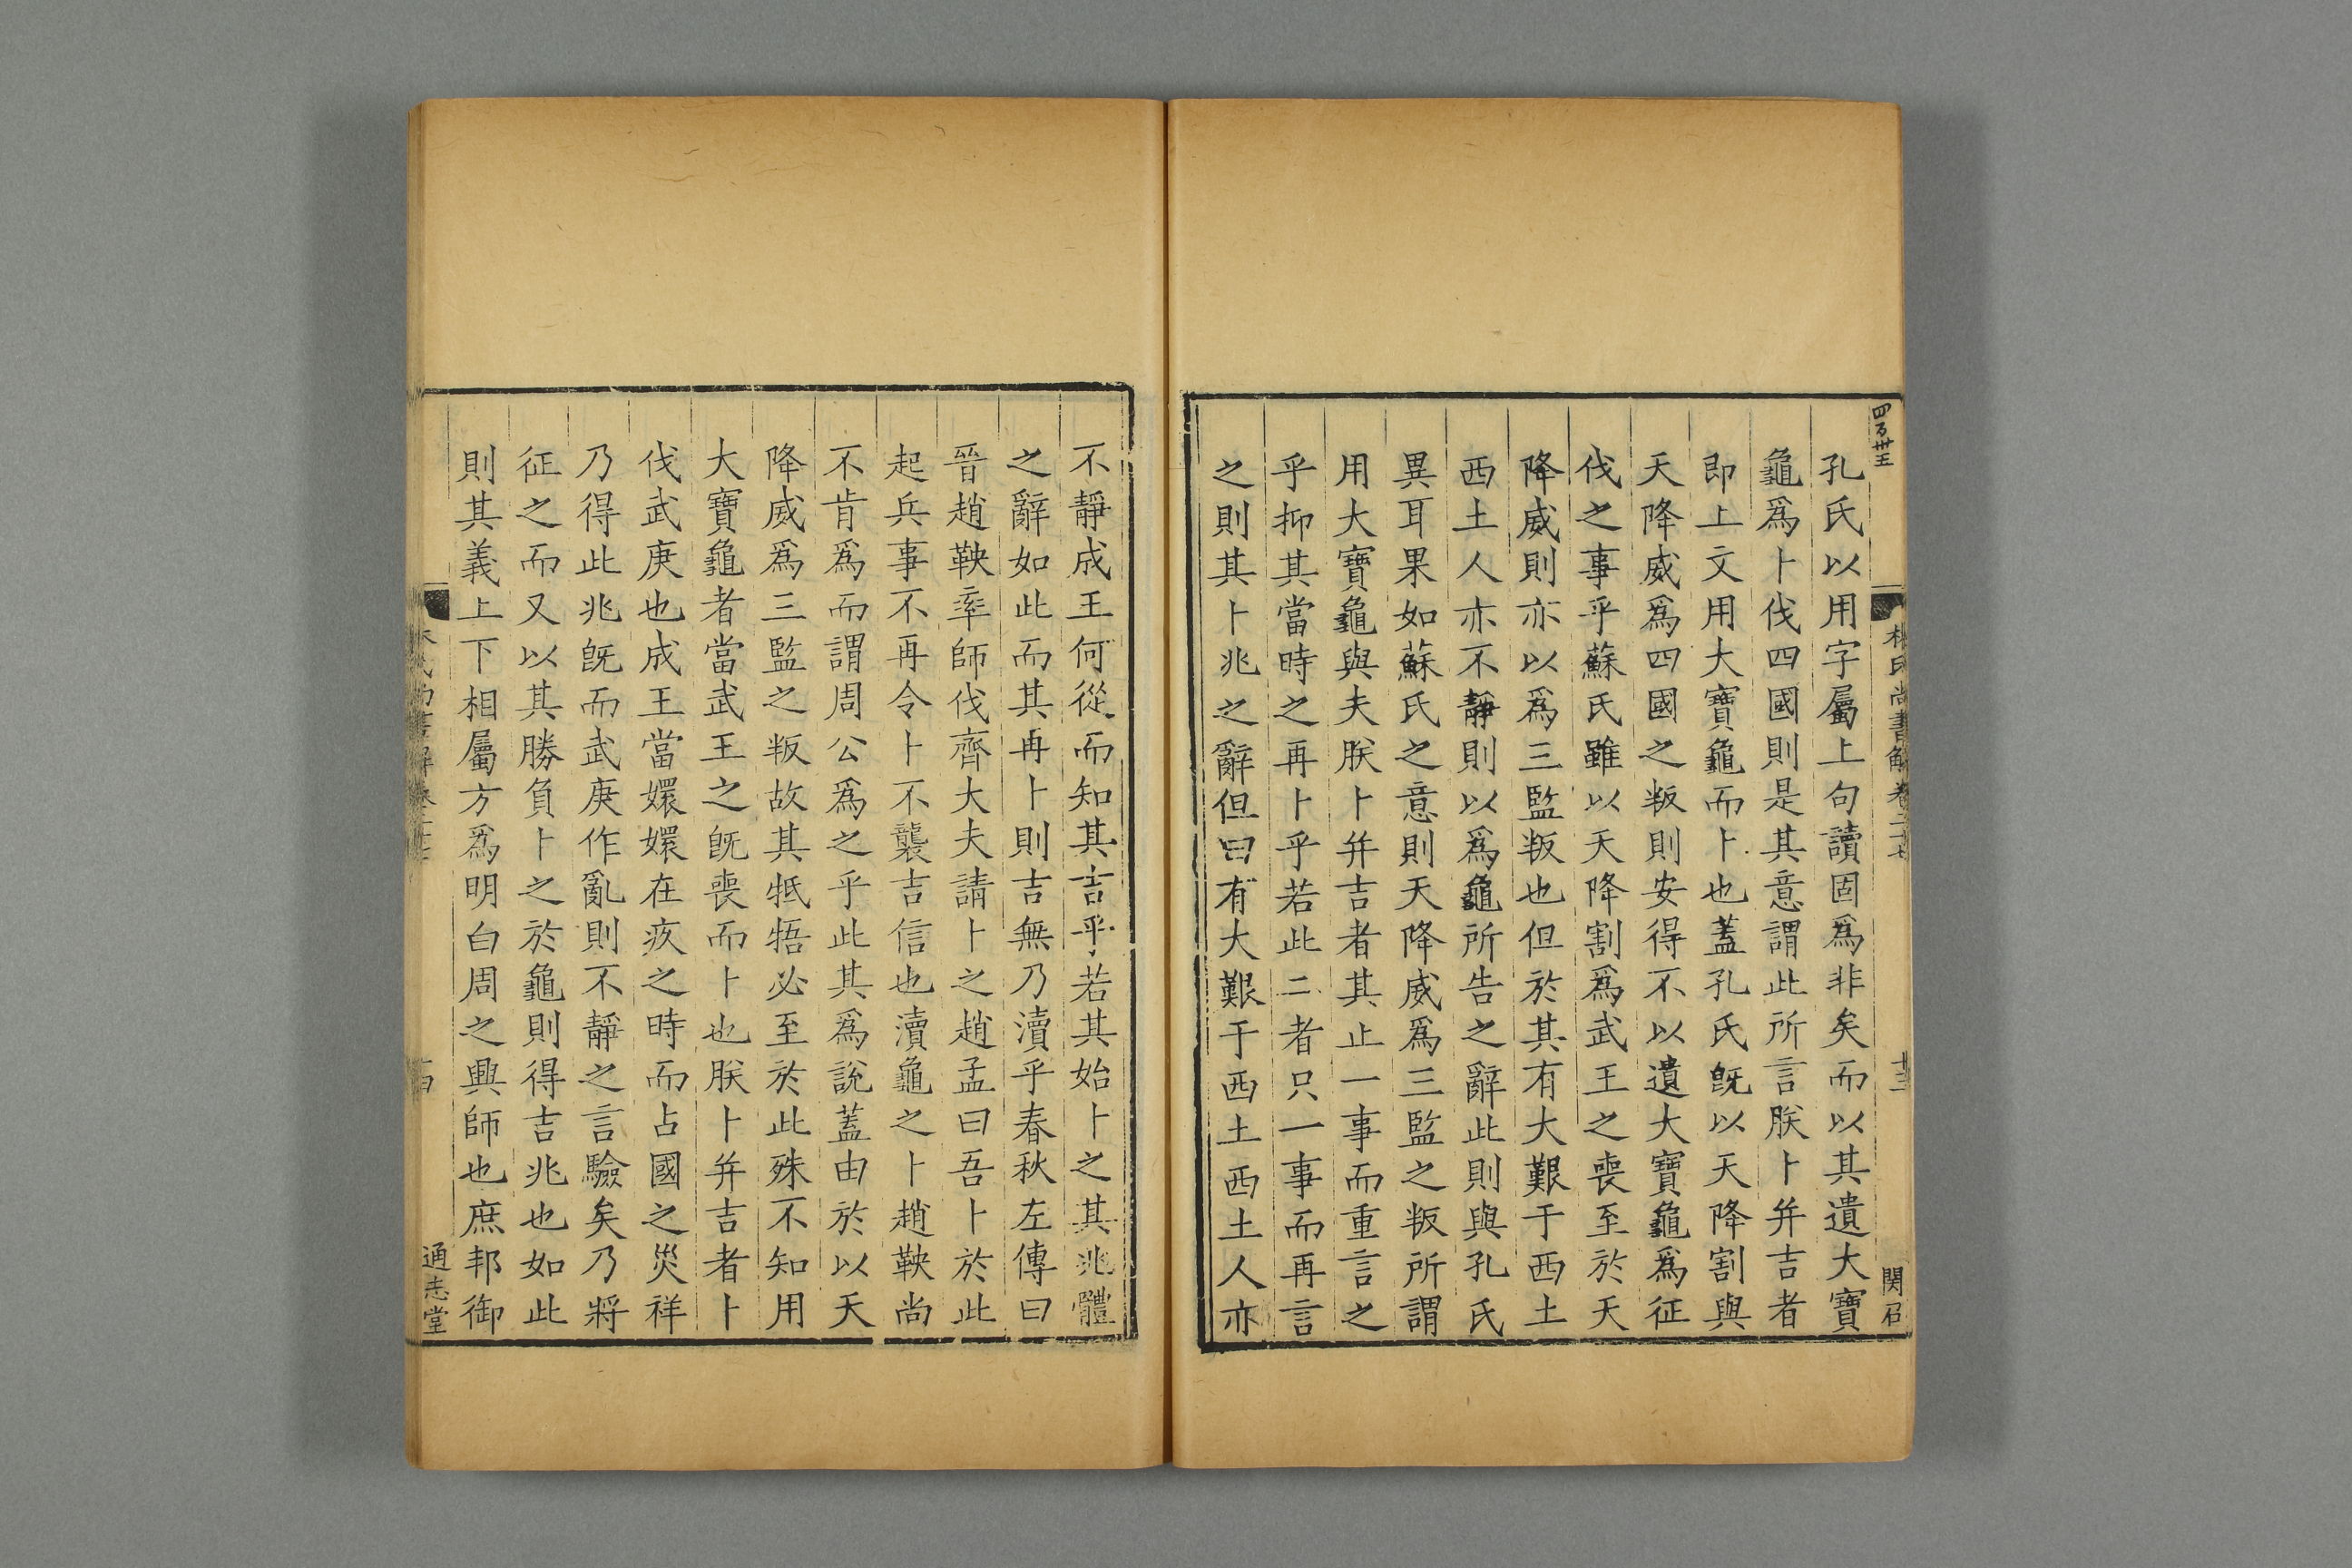 林氏尚書解卷二十七
十三
関召
孔氏以用字屬上句讀固爲非矣而以其遺大寶
龜爲卜伐四國則是其意謂此所言朕卜幷吉者
即上文用大寶龜而卜也蓋孔氏旣以天降割與
天降威爲四國之叛則安得不以遺大寶龜爲征
伐之事乎蘇氏雖以天降割爲武王之喪至於天
降威則亦以爲三監叛也但於其有大艱于西土
西土人亦不靜則以爲龜所告之辭此則與孔氏
異耳果如蘇氏之意則天降威爲三監之叛所謂
用大寶龜與夫朕卜幷吉者其止一事而重言之
乎抑其當時之再卜乎若此二者只一事而再言
之則其卜兆之辭但曰有大艱于西土西土人亦
不靜成王何從而知其吉乎若其始卜之其兆體
之辭如此而其再卜則吉無乃瀆乎春秋左傳曰
晉趙鞅率師伐齊大夫請卜之趙孟曰吾卜於此
起兵事不再令卜不襲吉信也瀆龜之卜趙鞅尚
不肯爲而謂周公爲之乎此其爲說蓋由於以天
降威爲三監之叛故其牴牾必至於此殊不知用
大寶龜者當武王之旣喪而卜也朕卜幷吉者卜
伐武庚也成王當嬛嬛在疚之時而占國之災祥
乃得此兆旣而武庚作亂則不靜之言驗矣乃將
征之而又以其勝負卜之於龜則得吉兆也如此
則其義上下相屬方爲明白周之興師也庶邦御
通志堂